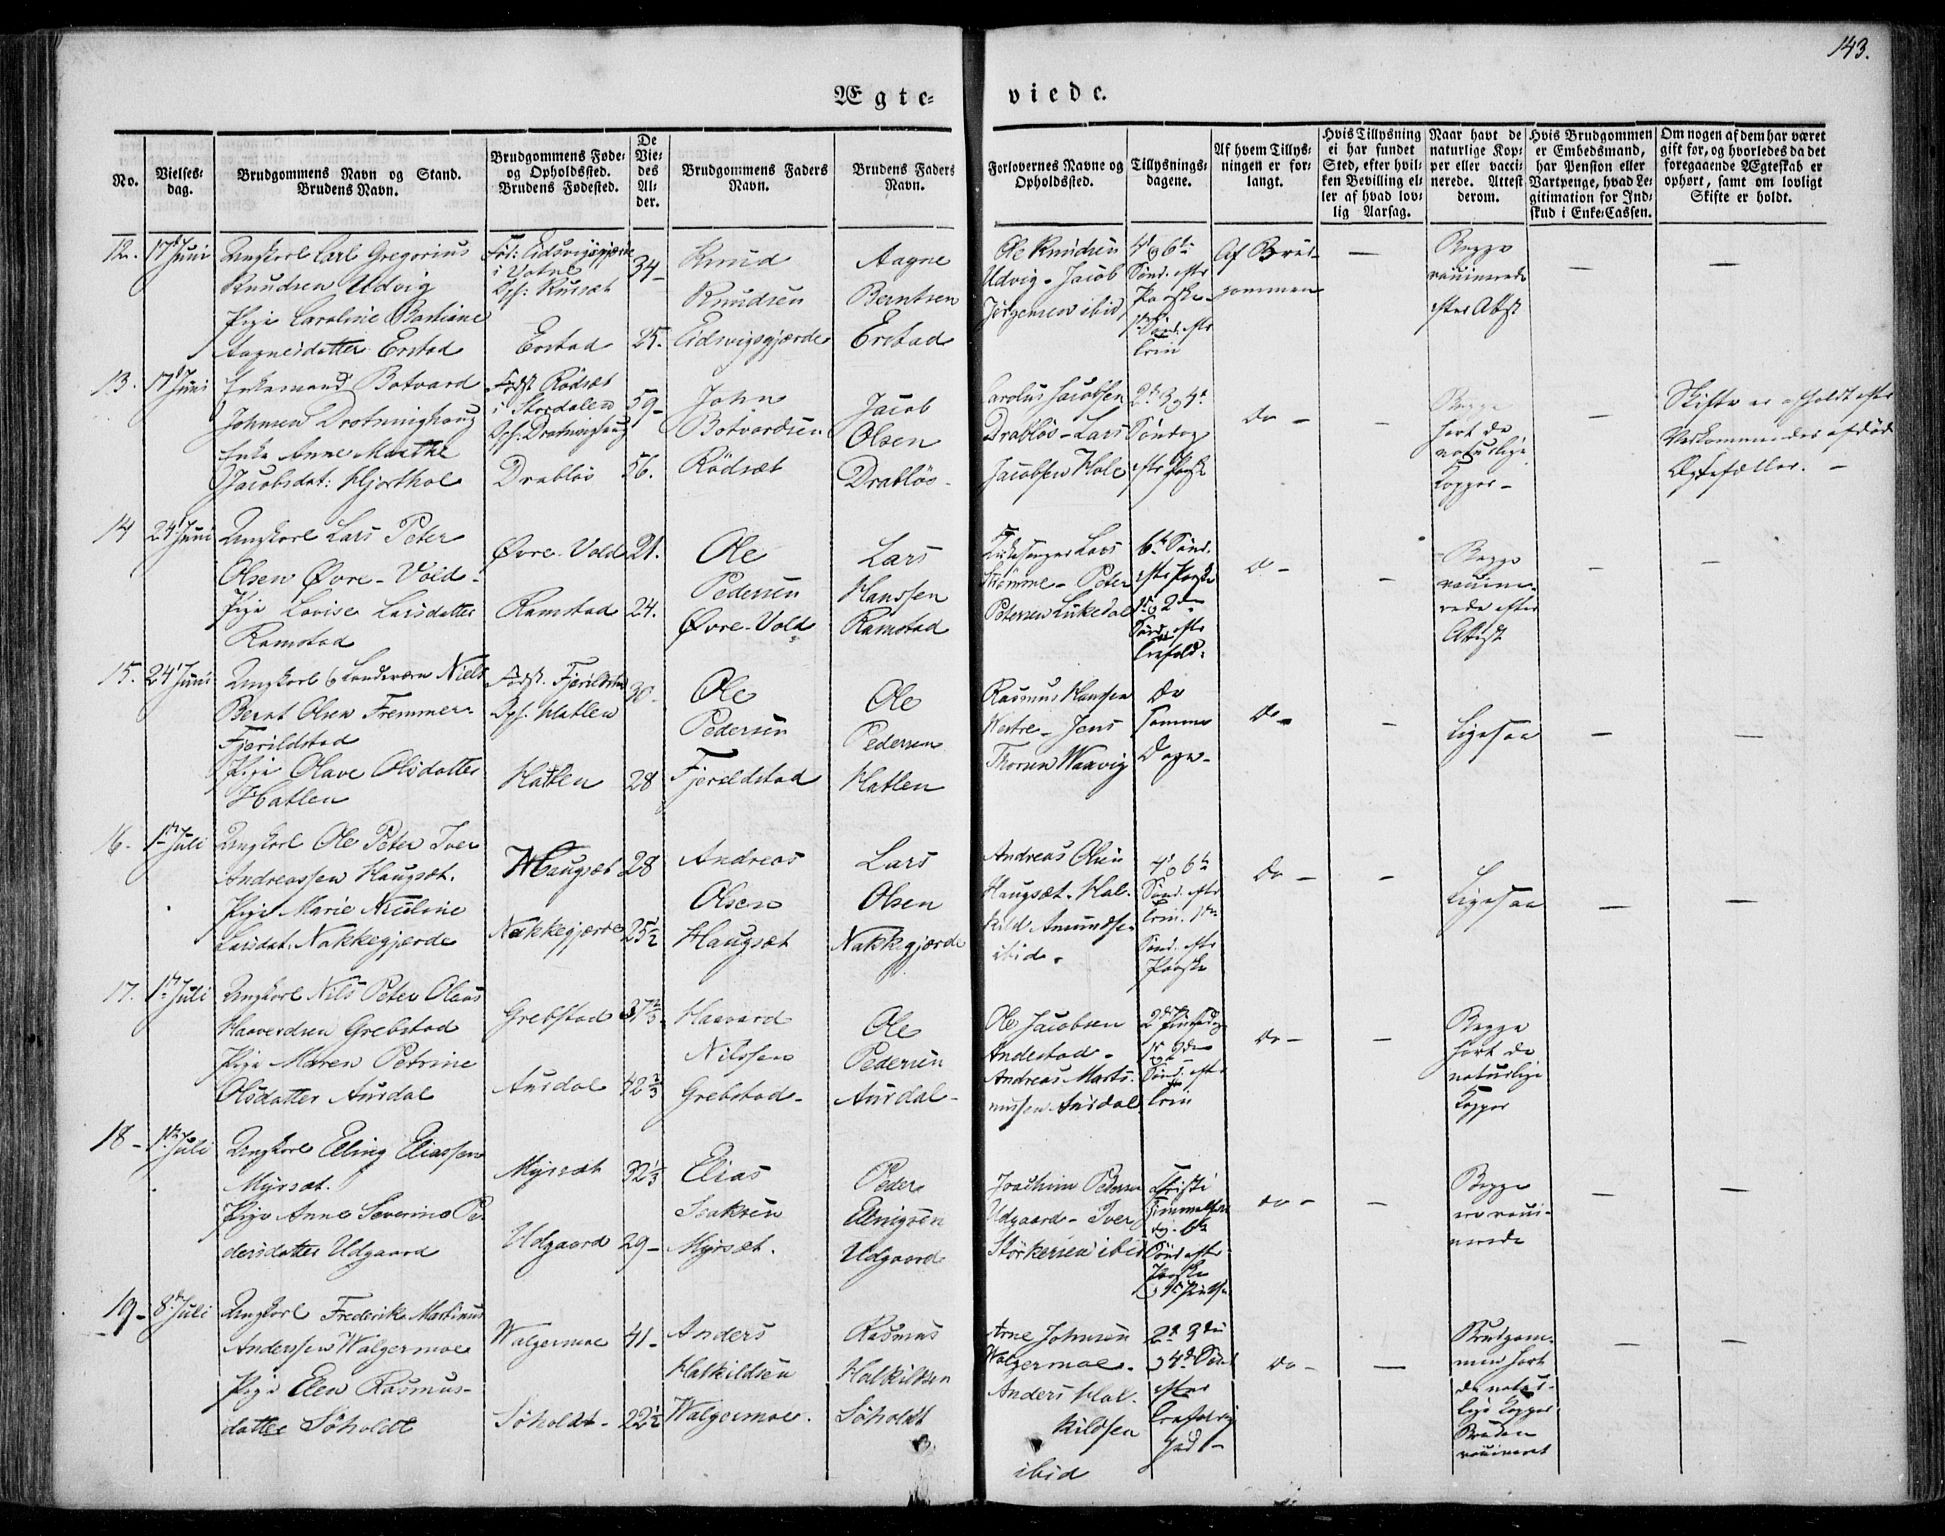 143.
Ægte- viede.
No.
Vielses-
dag.
Brudgommens Navn og Stand.
Brudens Navn.
Brudgommens Føde-
og Opholdssted.
Brudens Fødested.
De
Vie-
des
Al-
der.
Brudgommens Faders
Navn.
Brudens Faders
Navn.
Forlovernes Navne og
Opholdssted.
Tillysnings-
dagene.
Af hvem Tillys-
ningen er for-
langt.
Hvis Tillysning
ei har fundet
Sted, efter hvil-
ken Bevilling el-
ler af hvad lov-
lig Aarsag.
Naar havt de
naturlige Kop-
per eller vacci-
nerede. Attest
derom.
Hvis Brudgommen
er Embedsmand,
har Pension eller
Vartpenge, hvad Le-
gitimation for Ind-
skud i Enke-Cassen.
Om nogen af dem har været
gift før, og hvorledes da det
foregaaende Ægteskab er
ophørt, samt om lovligt
Skifte er holdt.
12. 17d Juni
Ungkarl Carl Gregorius
Knudsen Udvig
Pige Caroline Bastiane
Aagnesdatter Erstad
Fød: Eidsvigsgjærde
i Vatne
Oph: Russæt
Erstad
34-
25.
Knud
Knudsen
Eidsvigsgjærde
Aagne
Berntsen
Erstad
Ole Knudsen
Udvig - Jacob
Jørgensen ibid
4d & 6te
Sønd: efter
Paaske -
1ste Sønd. eftr
Trin
Af Brud-
gommen
—
Begge
vaccinerede
efter Attest
—
—
13. 17d Juni
Enkemand Botvard
Johnsen Drotninghaug
Enke Anne Marthe
Jacobsdat: Hjorthol
Født Rødsæt
i Stordalen
Oph: Drotninghaug
Drabløs
59-
56.
John
Botvardsen
Rødsæt
Jacob
Olsen
Drabløs -
Carolus Jacobsen
Drabløs - Lars
Jacobsen Hole
2d 3 & 4d
Søndag
eftr Paaske
Do -
—
Begge
havt de
naturlige
Kopper -
—
Skifte er afholdt efter
Vedkommendes afdøde
Ægtefæller. -
14 24d Juni
Ungkarl Lars Peter
Olsen Øvre-Vold -
Pige Lovise Larsdatter
Ramstad
Øvre-Vold
Ramstad
21.
24.
Ole
Pedersen
Øvre-Vold
Lars
Hanssen
Ramstad
Kirkesanger Lars
Strømme - Peter
Petersen Likedal
6te Sønd.
eftr Paaske
1ste & 2den
Sønd. eftr
Trefold:
Do -
—
Begge
vaccine-
rede efter
Attest
—
—
15. 24d Juni
Ungkarl & Landværn Niels
Bernt Olsen Fremmer-
Fjærildstad
Pige Olave Olsdatter
Hatlen
Født. Fjærildstad
Oph. Hatlen
Hatlen
30.
28
Ole
Pedersen
Fjerildstad
Ole
Pedersen
Hatlen
Rasmus Hansen
Westre - Jens
Thorsen Waavig
De
samme
Dage -
Do -
—
Ligesaa
—
—
16- 1ste Juli
Ungkarl Ole Peter Iver
Andreassen Haugsæt.
Pige Marie Nicoline
Larsdat. Nakkegjerde
Haugsæt
Nakkegjærde
28
25½
Andreas
Olsen
Haugsæt
Lars
Olsen
Nakkegjærde
Andreas Olsen
Haugsæt. Hal-
kild Amundse-
ibid.
4d & 6te
Sønd. eftr
Trin. 1ste
Sønd. eftr
Paaske
Do -
—
Ligesaa
—
—
17. 1ste Juli
Ungkarl Nils Peter Olaus
Haaverdsen Grebstad
Pige Maren Petrine
Olsdatter Aursdal
Grebstad
Aursdal
37⅔
42⅔
Haavard
Nilssen
Grebstad -
Ole
Pedersen
Aursdal -
Ole Jacobsen
Andestad -
Andreas Marti-
nussen Aursdal
2den Pintsedag
1ste & 2den
Sønd. eftr
Trin
Do -
—
Begge
havt de
naturlige
Kopper
—
—
18- 1ste Juli
Ungkarl Elling Eliassen
Myrsæt.
Pige Anne Severine Pe-
dersdatter Udgaard
Myrsæt
Udgaard
32⅓
29-
Elias
Isaksen
Myrsæt.
Peder
Elingsen
Udgaard
Joachim Pedersen
Udgaard - Iver
Størkersen ibid
Christi
Himmelfarts
dg. 6te
Sønd. efter
Paaske
& 1ste Pintse
Do -
—
Begge
ere vacci-
nerede
—
—
19- 8de Juli
Ungkarl Frederik Martinus
Anderssen Walgermoe
Pige Elen Rasmus-
datter Søholdt
Walgermoe
Søholdt -
41-
22½
Anders
Halkildsen
Walgermoe.
Rasmus
Halkildsen
Søholdt
Arne Johnsen
Walgermoe.
Anders Hal-
kildsen
ibid
2d 3die
& 4de Sønd
efter
Trefoldig-
hed -
Do -
—
Brudgom-
men havt
de natur-
lige Kopper
Bruden
vaccineret
—
—